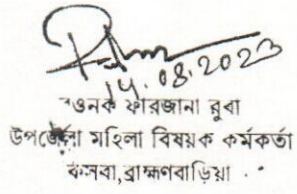 14.08.2023
রওনক ফারজানা রুবা
উপজেলা মহিলা বিষয়ক কর্মকর্তা
কসবা, ব্রাহ্মণবাড়িয়া